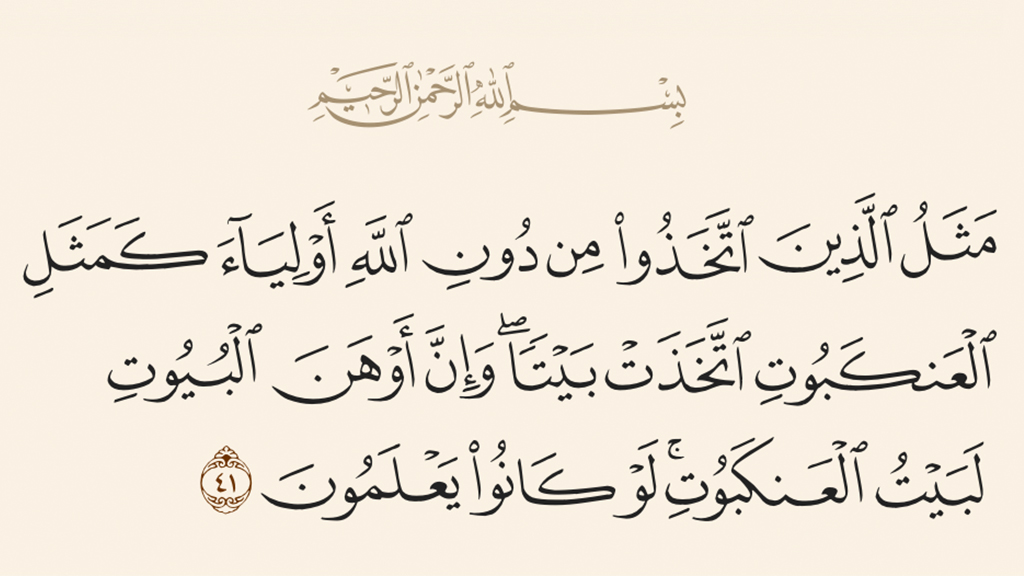 بِسْمِ ٱللَّهِ ٱلرَّحْمَٰنِ ٱلرَّحِيمِ
مَثَلُ ٱلَّذِينَ ٱتَّخَذُوا۟ مِن دُونِ ٱللَّهِ أَوْلِيَآءَ كَمَثَلِ
ٱلْعَنكَبُوتِ ٱتَّخَذَتْ بَيْتًۭا ۖ وَإِنَّ أَوْهَنَ ٱلْبُيُوتِ
لَبَيْتُ ٱلْعَنكَبُوتِ ۚ لَوْ كَانُوا۟ يَعْلَمُونَ ٤١